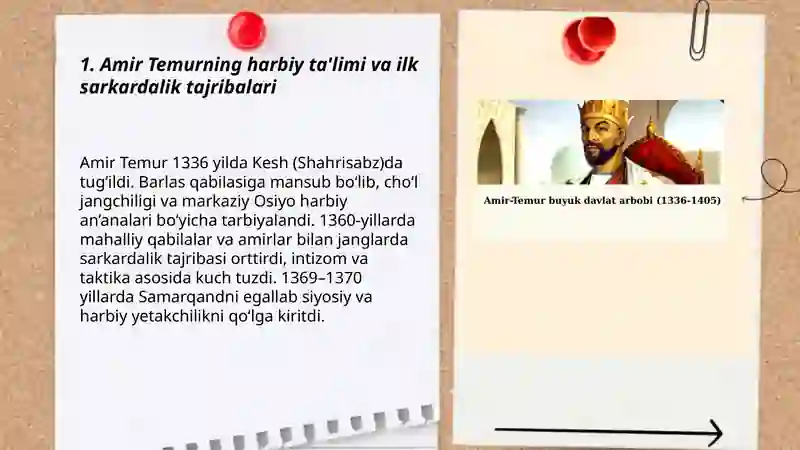 1. Amir Temurning harbiy ta'limi va ilk
sarkardalik tajribalari
Amir Temur 1336 yilda Kesh (Shahrisabz)da
tugʻildi. Barlas qabilasiga mansub boʻlib, choʻl
jangchiligi va markaziy Osiyo harbiy
anʼanalari boʻyicha tarbiyalandi. 1360-yillarda
mahalliy qabilalar va amirlar bilan janglarda
sarkardalik tajribasi orttirdi, intizom va
taktika asosida kuch tuzdi. 1369–1370
yillarda Samarqandni egallab siyosiy va
harbiy yetakchilikni qoʻlga kiritdi.
Amir-Temur buyuk davlat arbobi (1336-1405)